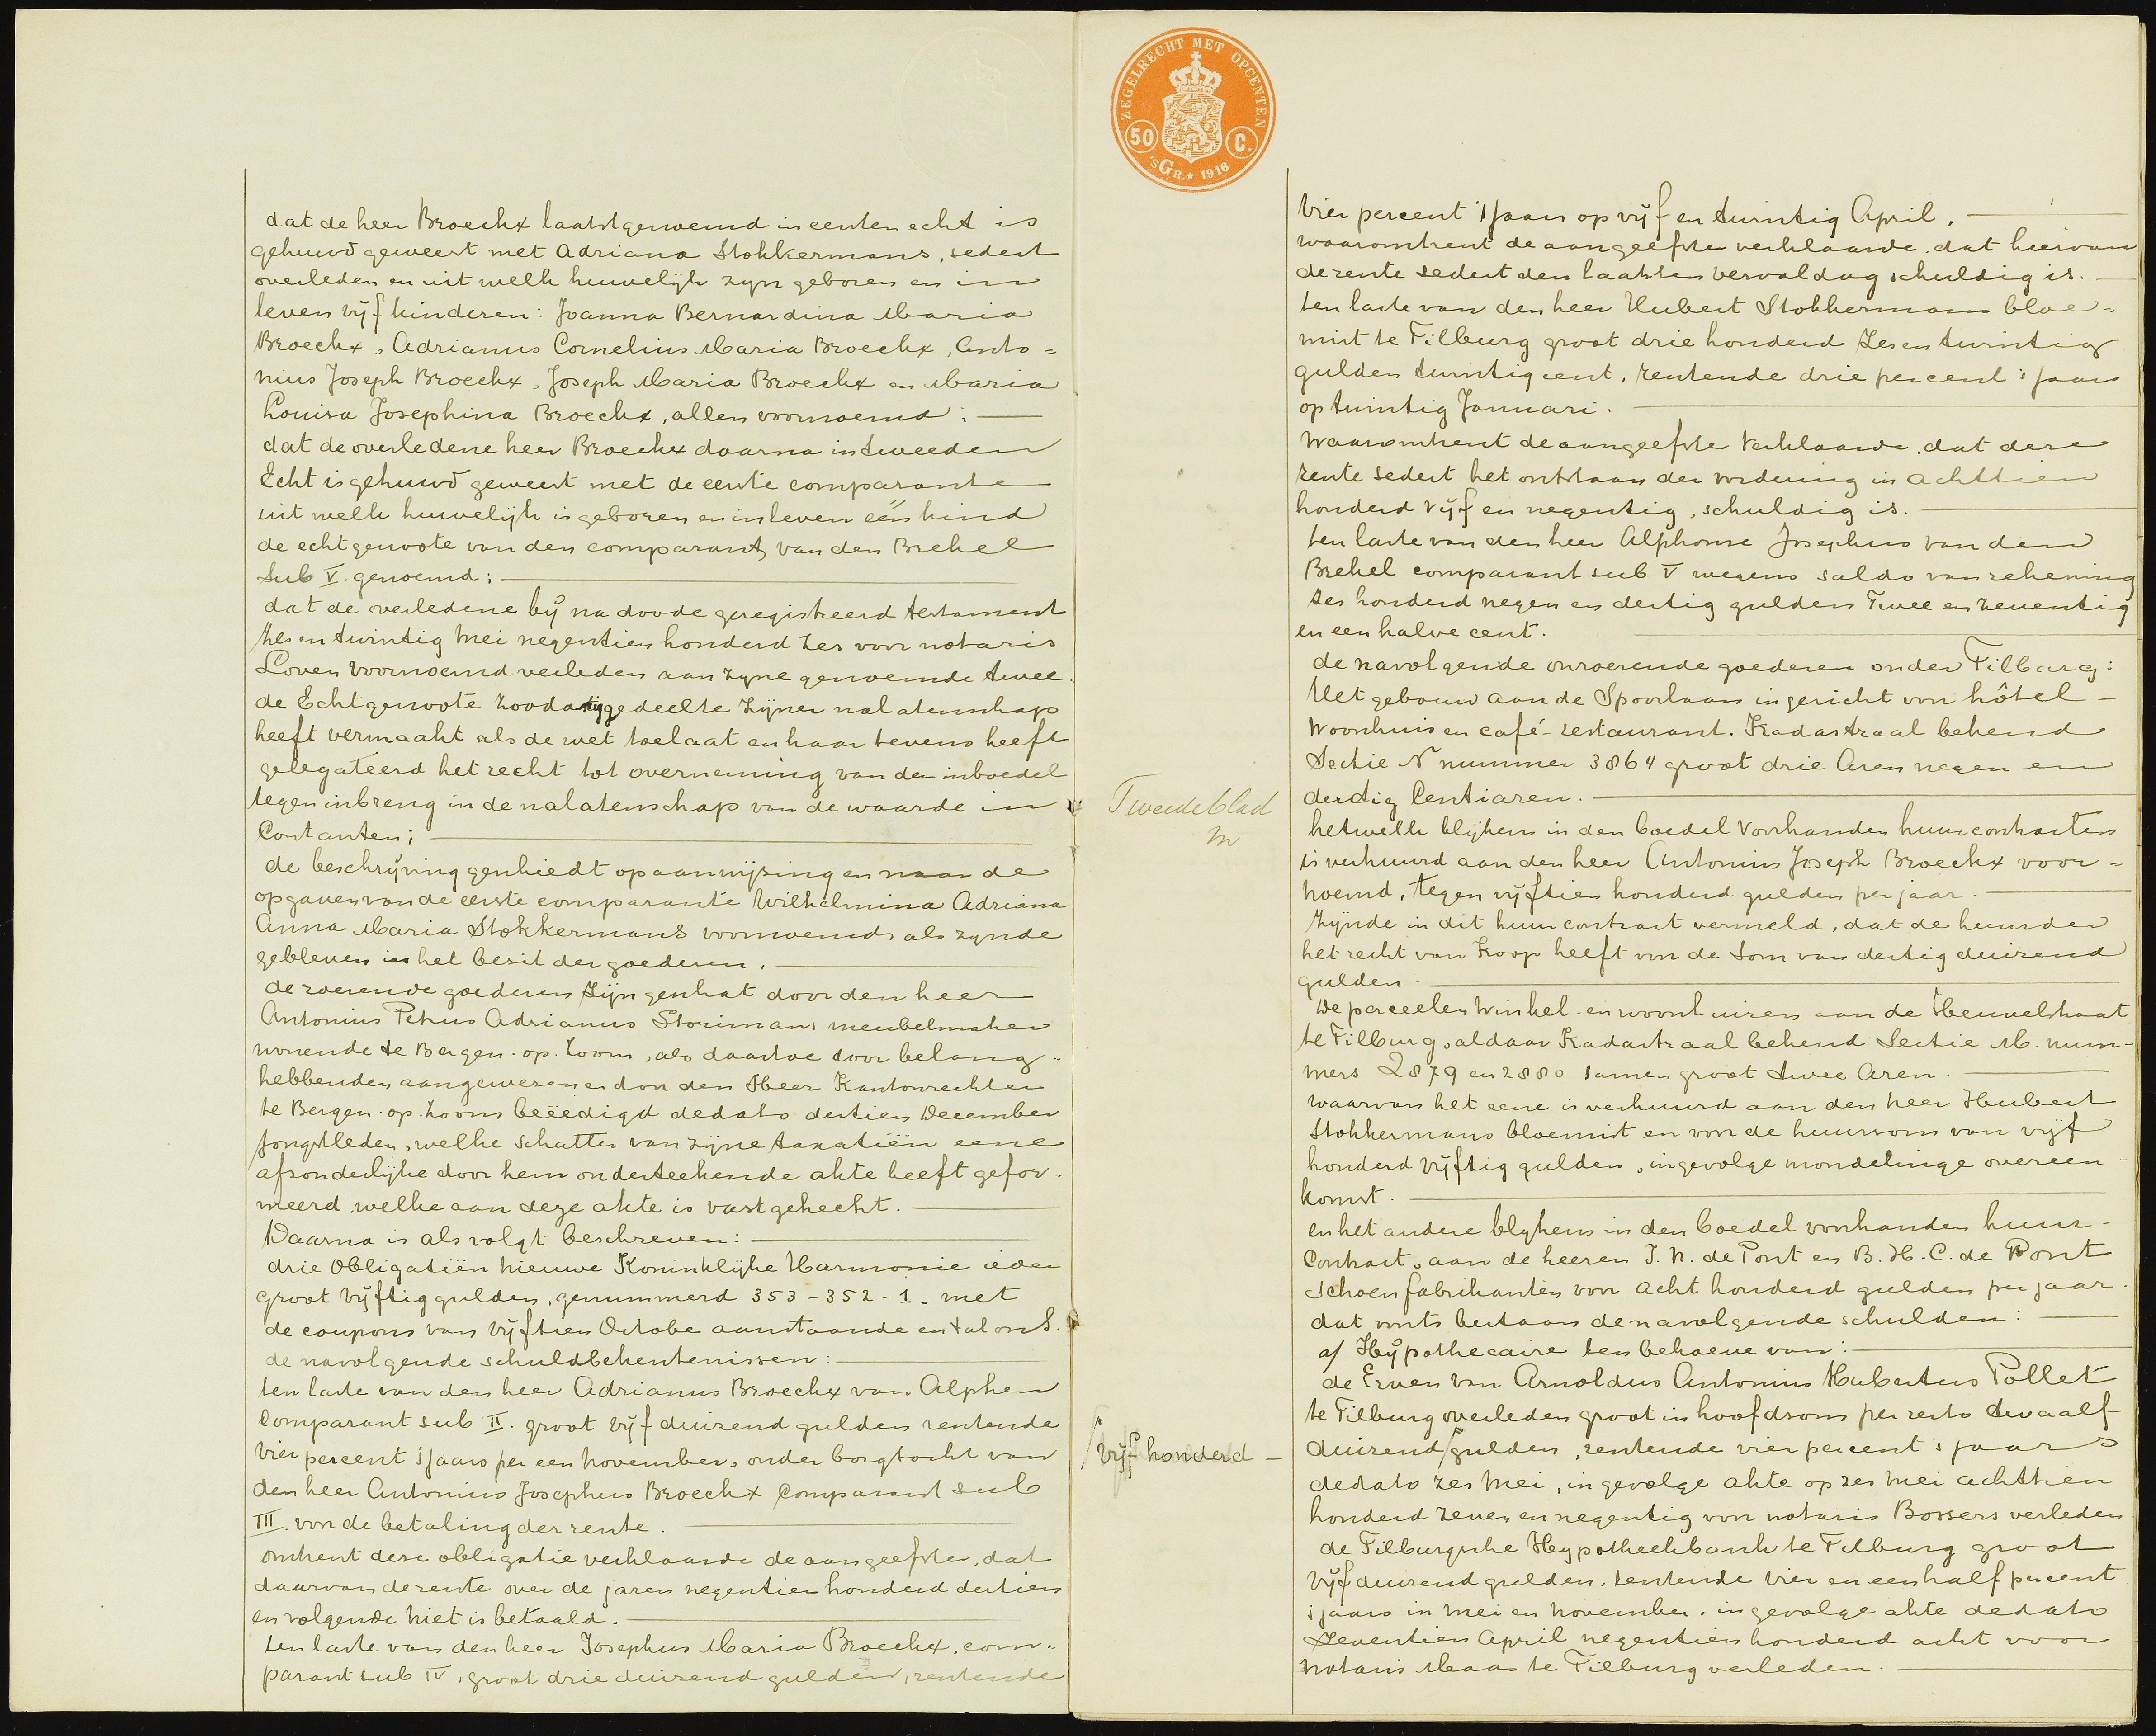 dat de heer Broeckx laatstgenoemd in eersten echt is
gehuwd geweest met Adriana Stokkermans, sedert
overleden en uit welk huwelijk zijn geboren en in
leven vijf kinderen: Joanna Bernardina Maria
Broeckx, Adrianus Cornelius Maria Broeckx, Anto=
nius Joseph Broeckx, Joseph Maria Broeckx en Maria
Louisa Josephina Broeckx, allen voornoemd;
dat de overledene heer Broeckx daarna in tweeden
Echt is gehuwd geweest met de eerste comparante
uit welk huwelijk is geboren en in leven één kind
de echtgenoote van den comparant van den Brekel
sub V. genoemd;
dat de overledene bij na doode geregistreerd testament
zes en twintig Mei negentien honderd zes voor notaris
Loven voornoemd verleden aan zijne genoemde twee
de Echtgenoote zoodanig gedeelte zijner nalatenschap
heeft vermaakt als de wet toelaat en haar tevens heeft
gelegateerd het recht tot overneming van den inboedel
tegen inbreng in de nalatenschap van de waarde in
Contanten;
de beschrijving geschiedt op aanwijzing en naar de
opgaven van de eerste comparante Wilhelmina Adriana
Anna Maria Stokkermans voornoemd als zijnde
gebleven in het bezit der goederen.
de roerende goederen zijn geschat door den heer
Antonius Petrus Adrianus Storimans meubelmaker
wonende te Bergen op Zoom, als daartoe door belang=
hebbenden aangewezen en door den Heer Kantonrechter
te Bergen op Zoom beëedigd dedato dertien December
jongstleden, welke schatter van zijne taxatiën eene
afzonderlijke door hem onderteekende akte heeft gefor=
meerd welke aan deze akte is vastgehecht.
Daarna is als volgt beschreven:
drie Obligatiën Nieuwe Koninklijke Harmonie ieder
groot vijftig gulden, genummerd 353-352-1. met
de coupons van vijftien Octobe aanstaande en talons.
de navolgende schuldbekentenissen:
ten laste van den heer Adrianus Broeckx van Alphen
Comparant sub II. groot vijf duizend gulden rentende
vier percent 's jaars per een november, onder borgtocht van
den heer Antonius Josephus Broeckx Comparant sub
III. voor de betaling der rente.
omtrent deze obligatie verklaarde de aangeefster, dat
daarvan de rente over de jaren negentien honderd dertien
en volgende niet is betaald.
ten laste van den heer Josephus Maria Broeckx, com=
parant sub IV, groot drie duizend gulden, rentende
ZEGELRECHT MET OPCENTEN
50 C.
'SGR. ★ 1916
vier percent 's jaars op vijf en twintig April,
waaromtrent de aangeefster verklaarde dat hiervan
de rente sedert den laatsten vervaldag schuldig is.
ten laste van den heer Hubert Stokkermans bloe=
mist te Tilburg groot drie honderd zes en twintig
gulden twintig cent, rentende drie percent 's jaars
op twintig Januari.
waaromtrent de aangeefster verklaarde dat deze
rente sedert het ontstaan der vordering in achttien
honderd vijf en negentig, schuldig is.
ten laste van den heer Alphonse Josephus van den
Brekel comparant sub V wegens saldo van rekening
zes honderd negen en dertig gulden Twee en zeventig
en een halve cent.
de navolgende onroerende goederen onder Tilburg:
Het gebouw aan de Spoorlaan ingericht voor hôtel-
woonhuis en café-restaurant. Kadastraal bekend
Sectie N nummer 3864 groot drie Aren negen en
dertig Centiaren.
Tweede blad
hetwelk blijkens in den boedel voorhanden huurcontracten
is verhuurd aan den heer Antonius Joseph Broeckx voor=
noemd, tegen vijftien honderd gulden per jaar.
zijnde in dit huurcontract vermeld, dat de huurder
het recht van Koop heeft voor de som van dertig duizend
gulden.
De perceelen winkel- en woonhuizen aan de Heuvelstraat
te Tilburg, aldaar Kadastraal bekend Sectie M. num-
mers 2879 en 2880 samen groot twee Aren.
waarvan het eene is verhuurd aan den heer Hubert
Stokkermans bloemist en voor de huursom van vijf
honderd vijftig gulden, ingevolge mondelinge overeen-
komst.
en het andere blijkens in den boedel voorhanden huur-
Contract, aan de heeren J. N. de Pont en B. H. C. de Pont
schoenfabrikanten voor acht honderd gulden per jaar.
dat voorts bestaan de navolgende schulden:
a/ Hypothecaire ten behoeve van:
de Erven van Arnoldus Antonius Hubertus Pollet
te Tilburg overleden groot in hoofdsom per resto twaalf
duizend / gulden, rentende vier percent 's jaars
/ vijf honderd -
dedato zes Mei, ingevolge akte op zes Mei achttien
honderd zeven en negentig voor notaris Bossers verleden
de Tilburgsche Hypotheekbank te Tilburg groot
vijf duizend gulden, rentende vier en een half percent
's jaars in Mei en November, ingevolge akte dedato
zeventien April negentien honderd acht voor
notaris Maas te Tilburg verleden.